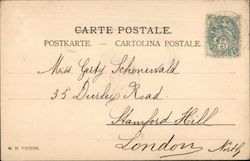 CARTE POSTALE.
POSTKARTE. — CARTOLINA POSTALE.
Miss Gerty Schönewald
35 Durley Road
Stamford Hill
London North
M. M. VIENNE.
5